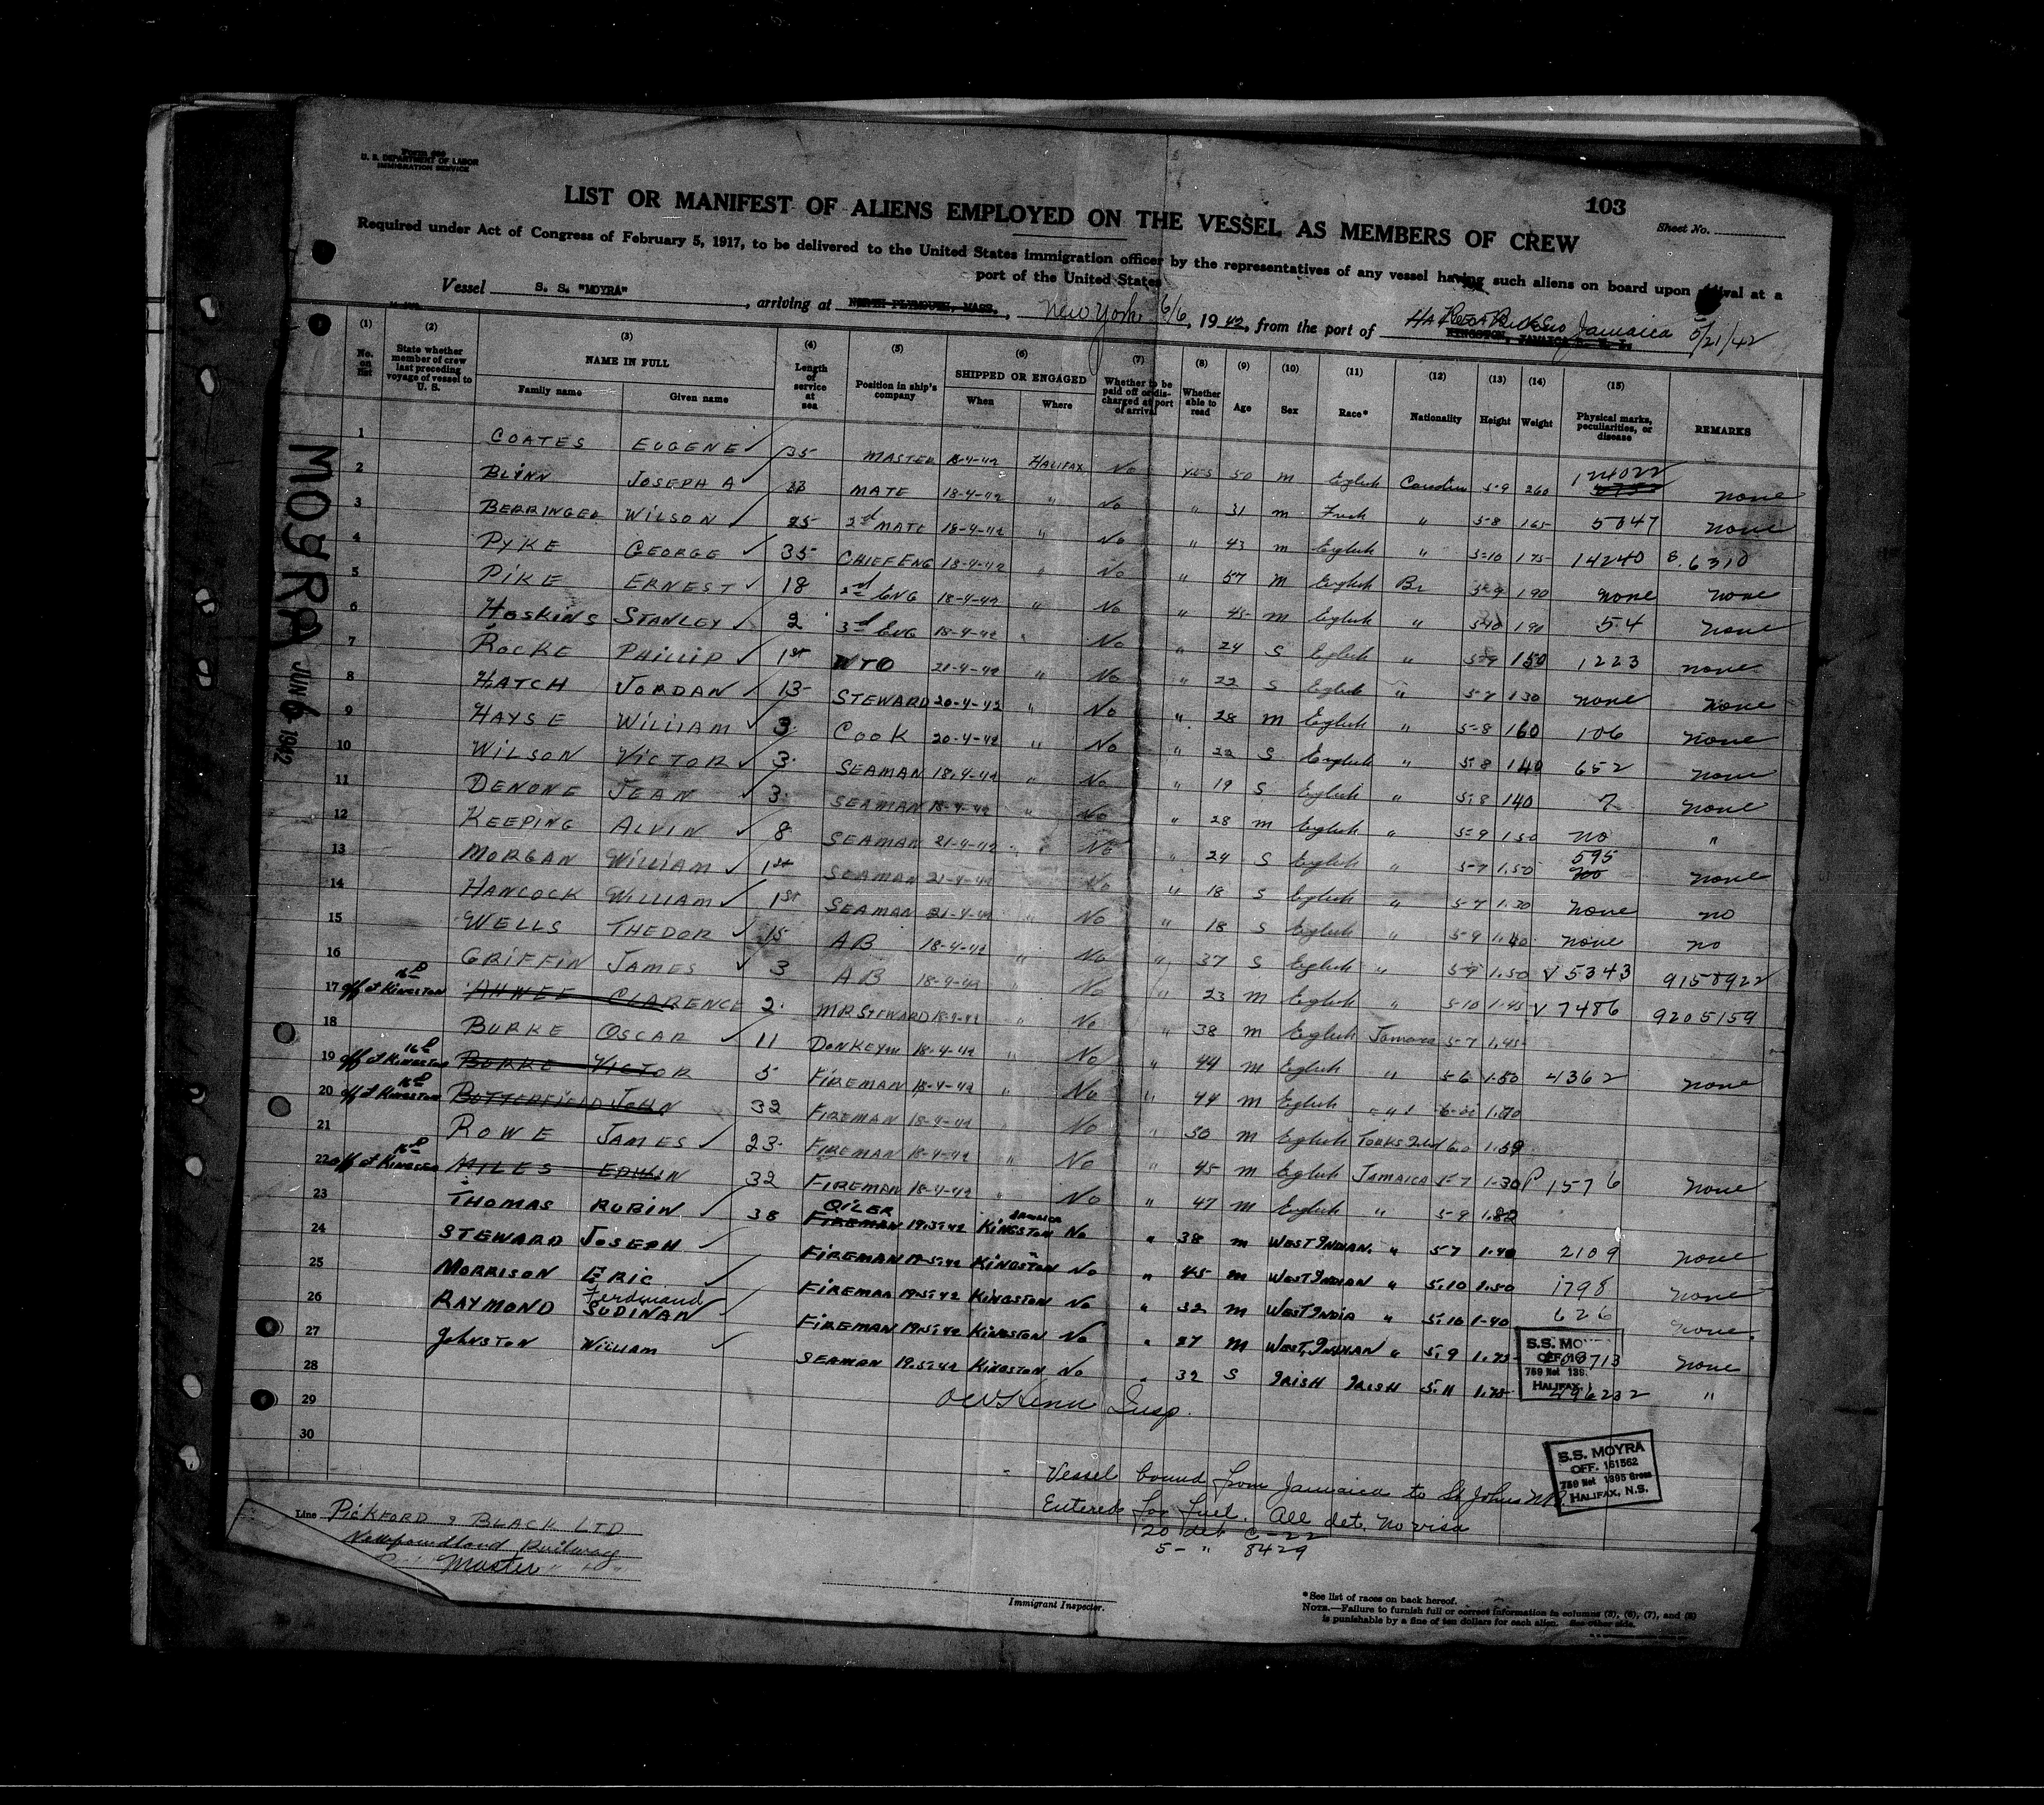 Form 689
U. S. DEPARTMENT OF LABOR
IMMIGRATION SERVICE
103
Sheet No.
LIST OR MANIFEST OF ALIENS EMPLOYED ON THE VESSEL AS MEMBERS OF CREW
Required under Act of Congress of February 5, 1917, to be delivered to the United States immigration officer by the representatives of any vessel having such aliens on board upon arrival at a
port of the United States
Vessel S. S. "MOYRA", arriving at NORTH PLYMOUTH, MASS., New York 6/6, 1942, from the port of Jamaica 5/21/42
KINGSTON, JAMAICA
(1) (2) (3) (4) (5) (6) (7) (8) (9) (10) (11) (12) (13) (14) (15)
No. on list
State whether member of crew last preceding voyage of vessel to U. S.
NAME IN FULL
Family name Given name
Length of service at sea
Position in ship's company
SHIPPED OR ENGAGED
When Where
Whether to be paid off or discharged at port of arrival
Whether able to read
Age Sex Race* Nationality Height Weight
Physical marks, peculiarities, or disease
REMARKS
MOYRA JUN 6 1942
1 COATES EUGENE 35 MASTER 18-4-42 HALIFAX No YES 50 m English Canadian 5-9 260 124022 none
2 BLINN JOSEPH A MATE 18-4-42 " No " 31 m " 5-8 165 5047 none
3 BERRINGER WILSON 25 2nd MATE 18-4-42 " No " 43 m English " 5-10 175 14240 8.6310
4 PYKE GEORGE 35 CHIEF ENG 18-4-42 " No " 57 m English Br 5-9 190 none none
5 PIKE ERNEST 18 2nd ENG 18-4-42 " No " 45 m English " 5-10 190 54 none
6 HOSKINS STANLEY 2 3rd ENG 18-4-42 " No " 24 S English " 5-9 150 1223 none
7 ROCKE PHILLIP 1st WTO 21-4-42 " No " 22 S English " 5-7 130 none none
8 HATCH JORDAN 13 STEWARD 20-4-42 " No " 28 m English " 5-8 160 106 none
9 HAYSE WILLIAM 3 COOK 20-4-42 " No " 22 S English " 5-8 140 652 none
10 WILSON VICTOR 3 SEAMAN 18-4-42 " No " 19 S English " 5-8 140 7 none
11 DENONE JEAN 3 SEAMAN 18-4-42 " No " 28 m English " 5-9 150 no "
12 KEEPING ALVIN 8 SEAMAN 21-4-42 " No " 24 S English " 5-7 1.50 595 none
13 MORGAN WILLIAM 1st SEAMAN 21-4-42 " No " 18 S English " 5-7 1.30 none no
14 HANCOCK WILLIAM 1st SEAMAN 21-4-42 " No " 18 S English " 5-9 1.40 none no
15 WELLS THEDOR 15 AB 18-4-42 " No " 37 S English " 5-9 1.50 V 5343 9158922
16 GRIFFIN JAMES 3 AB 18-4-42 " No " 23 m English " 5-10 1.45 V 7486 9205159
17 off at KINGSTON AHWEE CLARENCE 2 MR STEWARD 18-4-42 " No " 38 m English Jamaica 5-7 1.45
18 BURKE OSCAR 11 DONKEYM 18-4-42 " No " 44 m English " 5-6 1.50 4362 none
19 off at KINGSTON BURKE VICTOR 5 FIREMAN 18-4-42 " No " 44 m English
20 off at KINGSTON BUTTERFIELD JOHN 32 FIREMAN 18-4-42 " No " 50 m English 6.0 1.59
21 ROWE JAMES 23 FIREMAN 18-4-42 " No " 45 m English JAMAICA 5-7 1-30 P 1576 none
22 off at KINGSTON MILES EDWIN 32 FIREMAN 18-4-42 " No " 47 m English " 5-9 1.82
23 THOMAS RUBIN 38 OILER FIREMAN 19.5.42 KINGSTON JAMAICA No " 38 m WEST INDIAN " 5-7 1.40 2109 none
24 STEWARD JOSEPH FIREMAN 19.5.42 KINGSTON No " 45 m WEST INDIAN " 5.10 1.50 1798 none
25 MORRISON ERIC FIREMAN 19.5.42 KINGSTON No " 32 m WEST INDIA " 5.10 1-40 626 none
26 RAYMOND Ferdinand SUDINAN FIREMAN 19.5.42 KINGSTON No " 27 m WEST INDIAN " 5.9 1.75 none
27 JOHNSTON WILLIAM SEAMAN 19.5.42 KINGSTON No " 32 S IRISH IRISH 5.11 1.75 496232 "
28
29
30
Insp.
S.S. MO
OFF.
759 Net 139
HALIFAX,
S.S. MOYRA
OFF. 151562
759 Net 1395 Gross
HALIFAX, N.S.
Vessel bound from Jamaica to St Johns NF.
Entered for fuel. All det. no visa
20 det C-22
5- " 8429
Line PICKFORD & BLACK LTD
Newfoundland Railway
Master
Immigrant Inspector.
*See list of races on back hereof.
NOTE.—Failure to furnish full or correct information in columns (2), (6), (7), and (8)
is punishable by a fine of ten dollars for each alien. See other side.